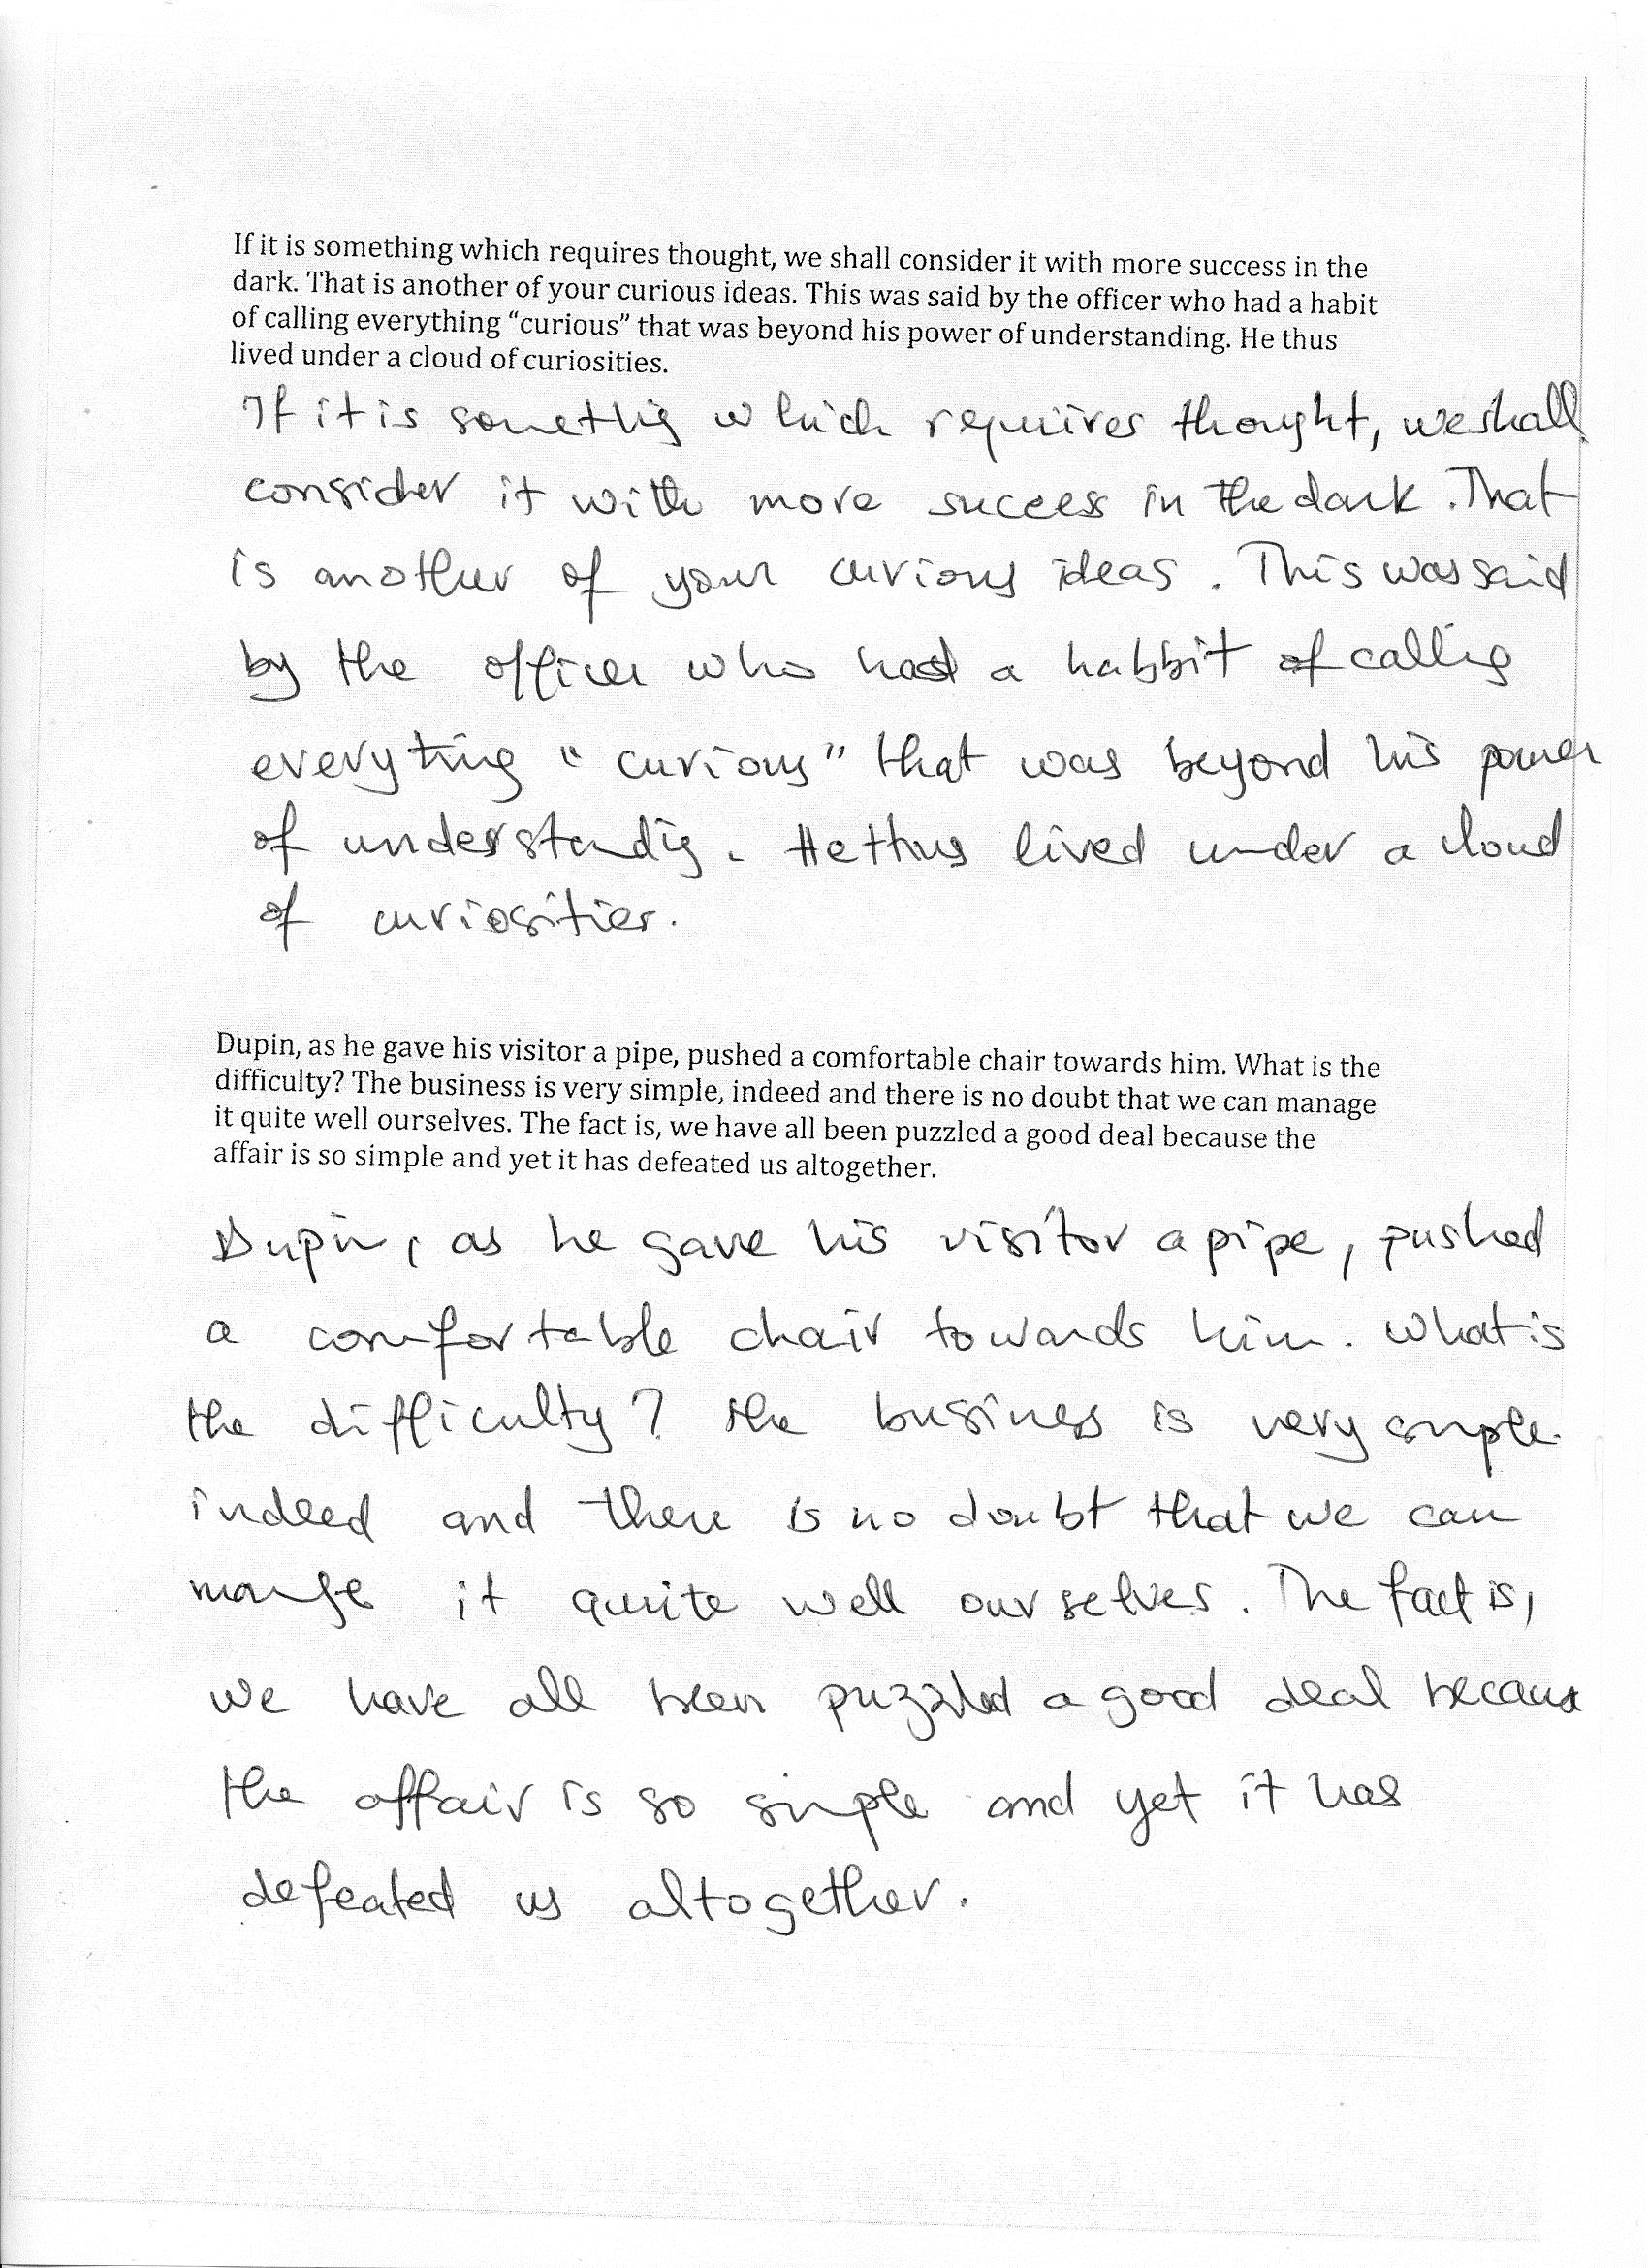 If it is something which requires thought, we shall consider it with more success in the
dark. That is another of your curious ideas. This was said by the officer who had a habit
of calling everything “curious” that was beyond his power of understanding. He thus
lived under a cloud of curiosities.
If it is somethig which requires thought, we shall
consider it with more success in the dark. That
is another of your curious ideas. This was said
by the officer who had a habbit of callig
everyting "curious" that was beyond his power
of understandig. He thus lived under a cloud
of curiosities.
Dupin, as he gave his visitor a pipe, pushed a comfortable chair towards him. What is the
difficulty? The business is very simple, indeed and there is no doubt that we can manage
it quite well ourselves. The fact is, we have all been puzzled a good deal because the
affair is so simple and yet it has defeated us altogether.
Dupin, as he gave his visitor a pipe, pushed
a comfortable chair towards him. What is
the difficulty? The business is very simple.
indeed and there is no doubt that we can
mange it quite well ourselves. The fact is,
we have all been puzzled a good deal because
the affair is so simple and yet it has
defeated us altogether.